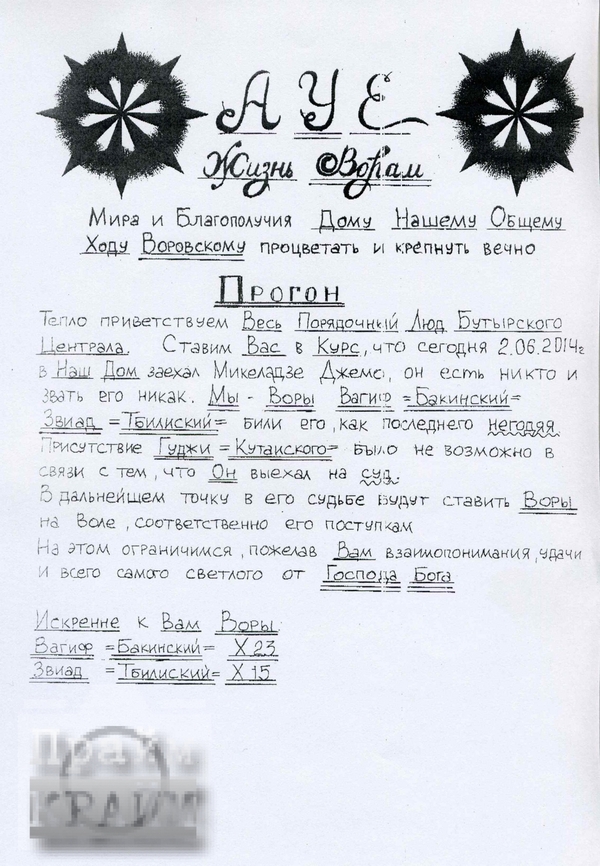 АУЕ
Жизнь Ворам
Мира и Благополучия Дому Нашему Общему
Ходу Воровскому процветать и крепнуть вечно
Прогон
Тепло приветствуем Весь Порядочный Люд Бутырского
Централа. Ставим Вас в Курс, что сегодня 2.06.2014г
в Наш Дом заехал Микеладзе Джемо, он есть никто и
звать его никак. Мы - Воры Вагиф =Бакинский=
Звиад =Тбилиский= били его, как последнего негодяя.
Присутствие Гуджи =Кутаиского= было не возможно в
связи с тем, что Он выехал на суд.
В дальнейшем точку в его судьбе будут ставить Воры
на Воле, соответственно его поступкам
На этом ограничимся, пожелав Вам взаимопонимания, удачи
и всего самого светлого от Господа Бога
Искренне к Вам Воры:
Вагиф =Бакинский= Х 23
Звиад =Тбилиский= Х 15
Прайм
КРАЙМ